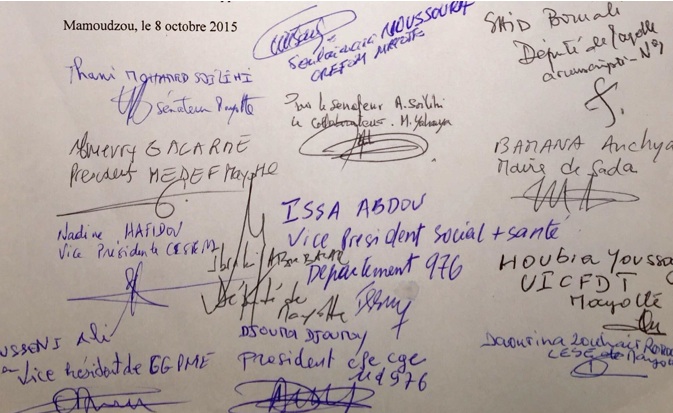 Mamoudzou, le 8 octobre 2015
MOUSSOURA
Soulaimana
CREFOM MAYOTTE
SAID Boinali
Député de Mayotte
circonscription N°
Thani MOHAMED SOILIHI
Sénateur Mayotte
Pour le Senateur A. Soilihi
le Collaborateur. M.
Thierry GALARME
President MEDEF Mayotte
BAMANA Anchya
Maire de Sada
ISSA ABDOU
Vice President social + santé
Departement 976
Nadine HAFIDOU
Vice Présidente CESEM
Ibrahim ABOUBACAR
Député de
Mayotte
HOUBIA Youssa
VICFDT
Mayotte
Ali
Vice Président de CGPME
DJOUMA DJOUMOY
President cfe cge
976
Daourina Zouhairi
CESE de